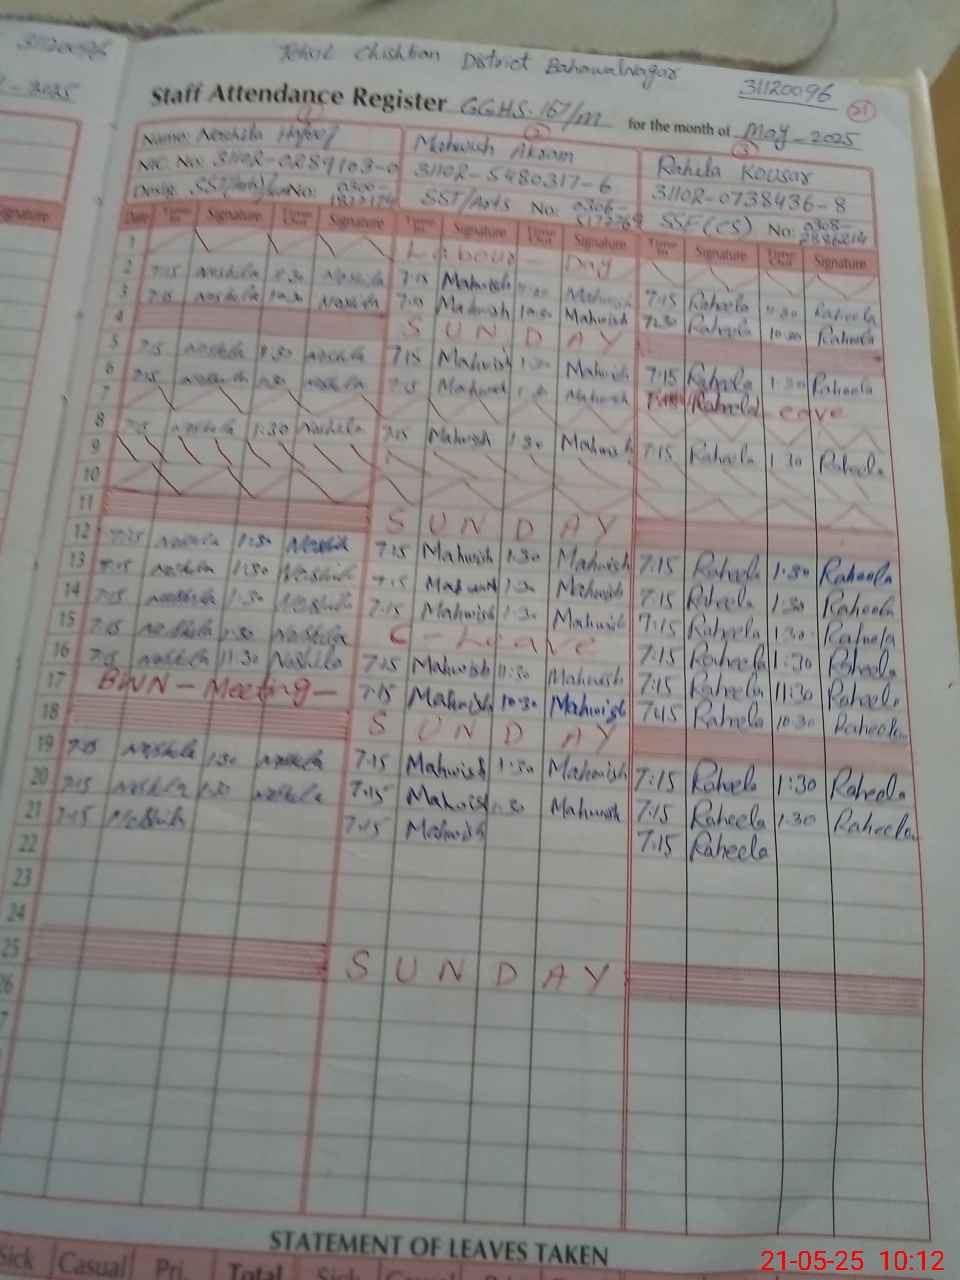 31120096
2025
Tehsil Chishtian District Bahawalnagar
31120096
Staff Attendance Register GGHS. 167/m for the month of May - 2025
Name: Noshila
Mahwish Akram
Rahila Kousar
NIC. No. 31102-0289103-0
31102-5480317-6
31102-0738436-8
Desig. SST No:
SST/Arts No: 0306-
SSE (CS) No: 0308-
Date Time In Signature Time Out Signature Time In Signature Time Out Signature Time In Signature Time Out Signature
1 Labour - Day
2 7:15 Noshila Noshila 7:15 Mahwish Mahwish 7:15 Raheela 11:30 Raheela
3 7:15 Noshila 10:30 Noshila 7:15 Mahwish 10:30 Mahwish 7:30 Raheela 10:30 Raheela
4 SUNDAY
5 7:15 Noshila 1:30 Noshila 7:15 Mahwish 1:30 Mahwish 7:15 Raheela 1:30 Raheela
6 7:15 Noshila 1:30 Noshila 7:15 Mahwish Mahwish Raheela Leave
7
8 7:15 Noshila 1:30 Noshila 7:15 Mahwish 1:30 Mahwish 7:15 Raheela 1:30 Raheela
9
10
11 SUNDAY
12 7:15 Noshila 1:30 Noshila 7:15 Mahwish 1:30 Mahwish 7:15 Raheela 1:30 Raheela
13 7:15 Noshila 1:30 Noshila 7:15 Mahwish 1:30 Mahwish 7:15 Raheela 1:30 Raheela
14 7:15 Noshila 1:30 Noshila 7:15 Mahwish 1:30 Mahwish 7:15 Raheela 1:30 Raheela
15 7:15 Noshila 1:30 Noshila C - Leave 7:15 Raheela 1:30 Raheela
16 7:15 Noshila 11:30 Noshila 7:15 Mahwish 11:30 Mahwish 7:15 Raheela 11:30 Raheela
17 BWN - Meeting - 7:15 Mahwish 10:30 Mahwish 7:15 Raheela 10:30 Raheela
18 SUNDAY
19 7:15 Noshila 1:30 Noshila 7:15 Mahwish 1:30 Mahwish 7:15 Raheela 1:30 Raheela
20 7:15 Noshila 1:30 Noshila 7:15 Mahwish 1:30 Mahwish 7:15 Raheela 1:30 Raheela
21 7:15 Noshila 7:15 Mahwish 7:15 Raheela
22
23
24
25 SUNDAY
26
STATEMENT OF LEAVES TAKEN
Sick Casual Pri. Total Sick
21-05-25 10:12